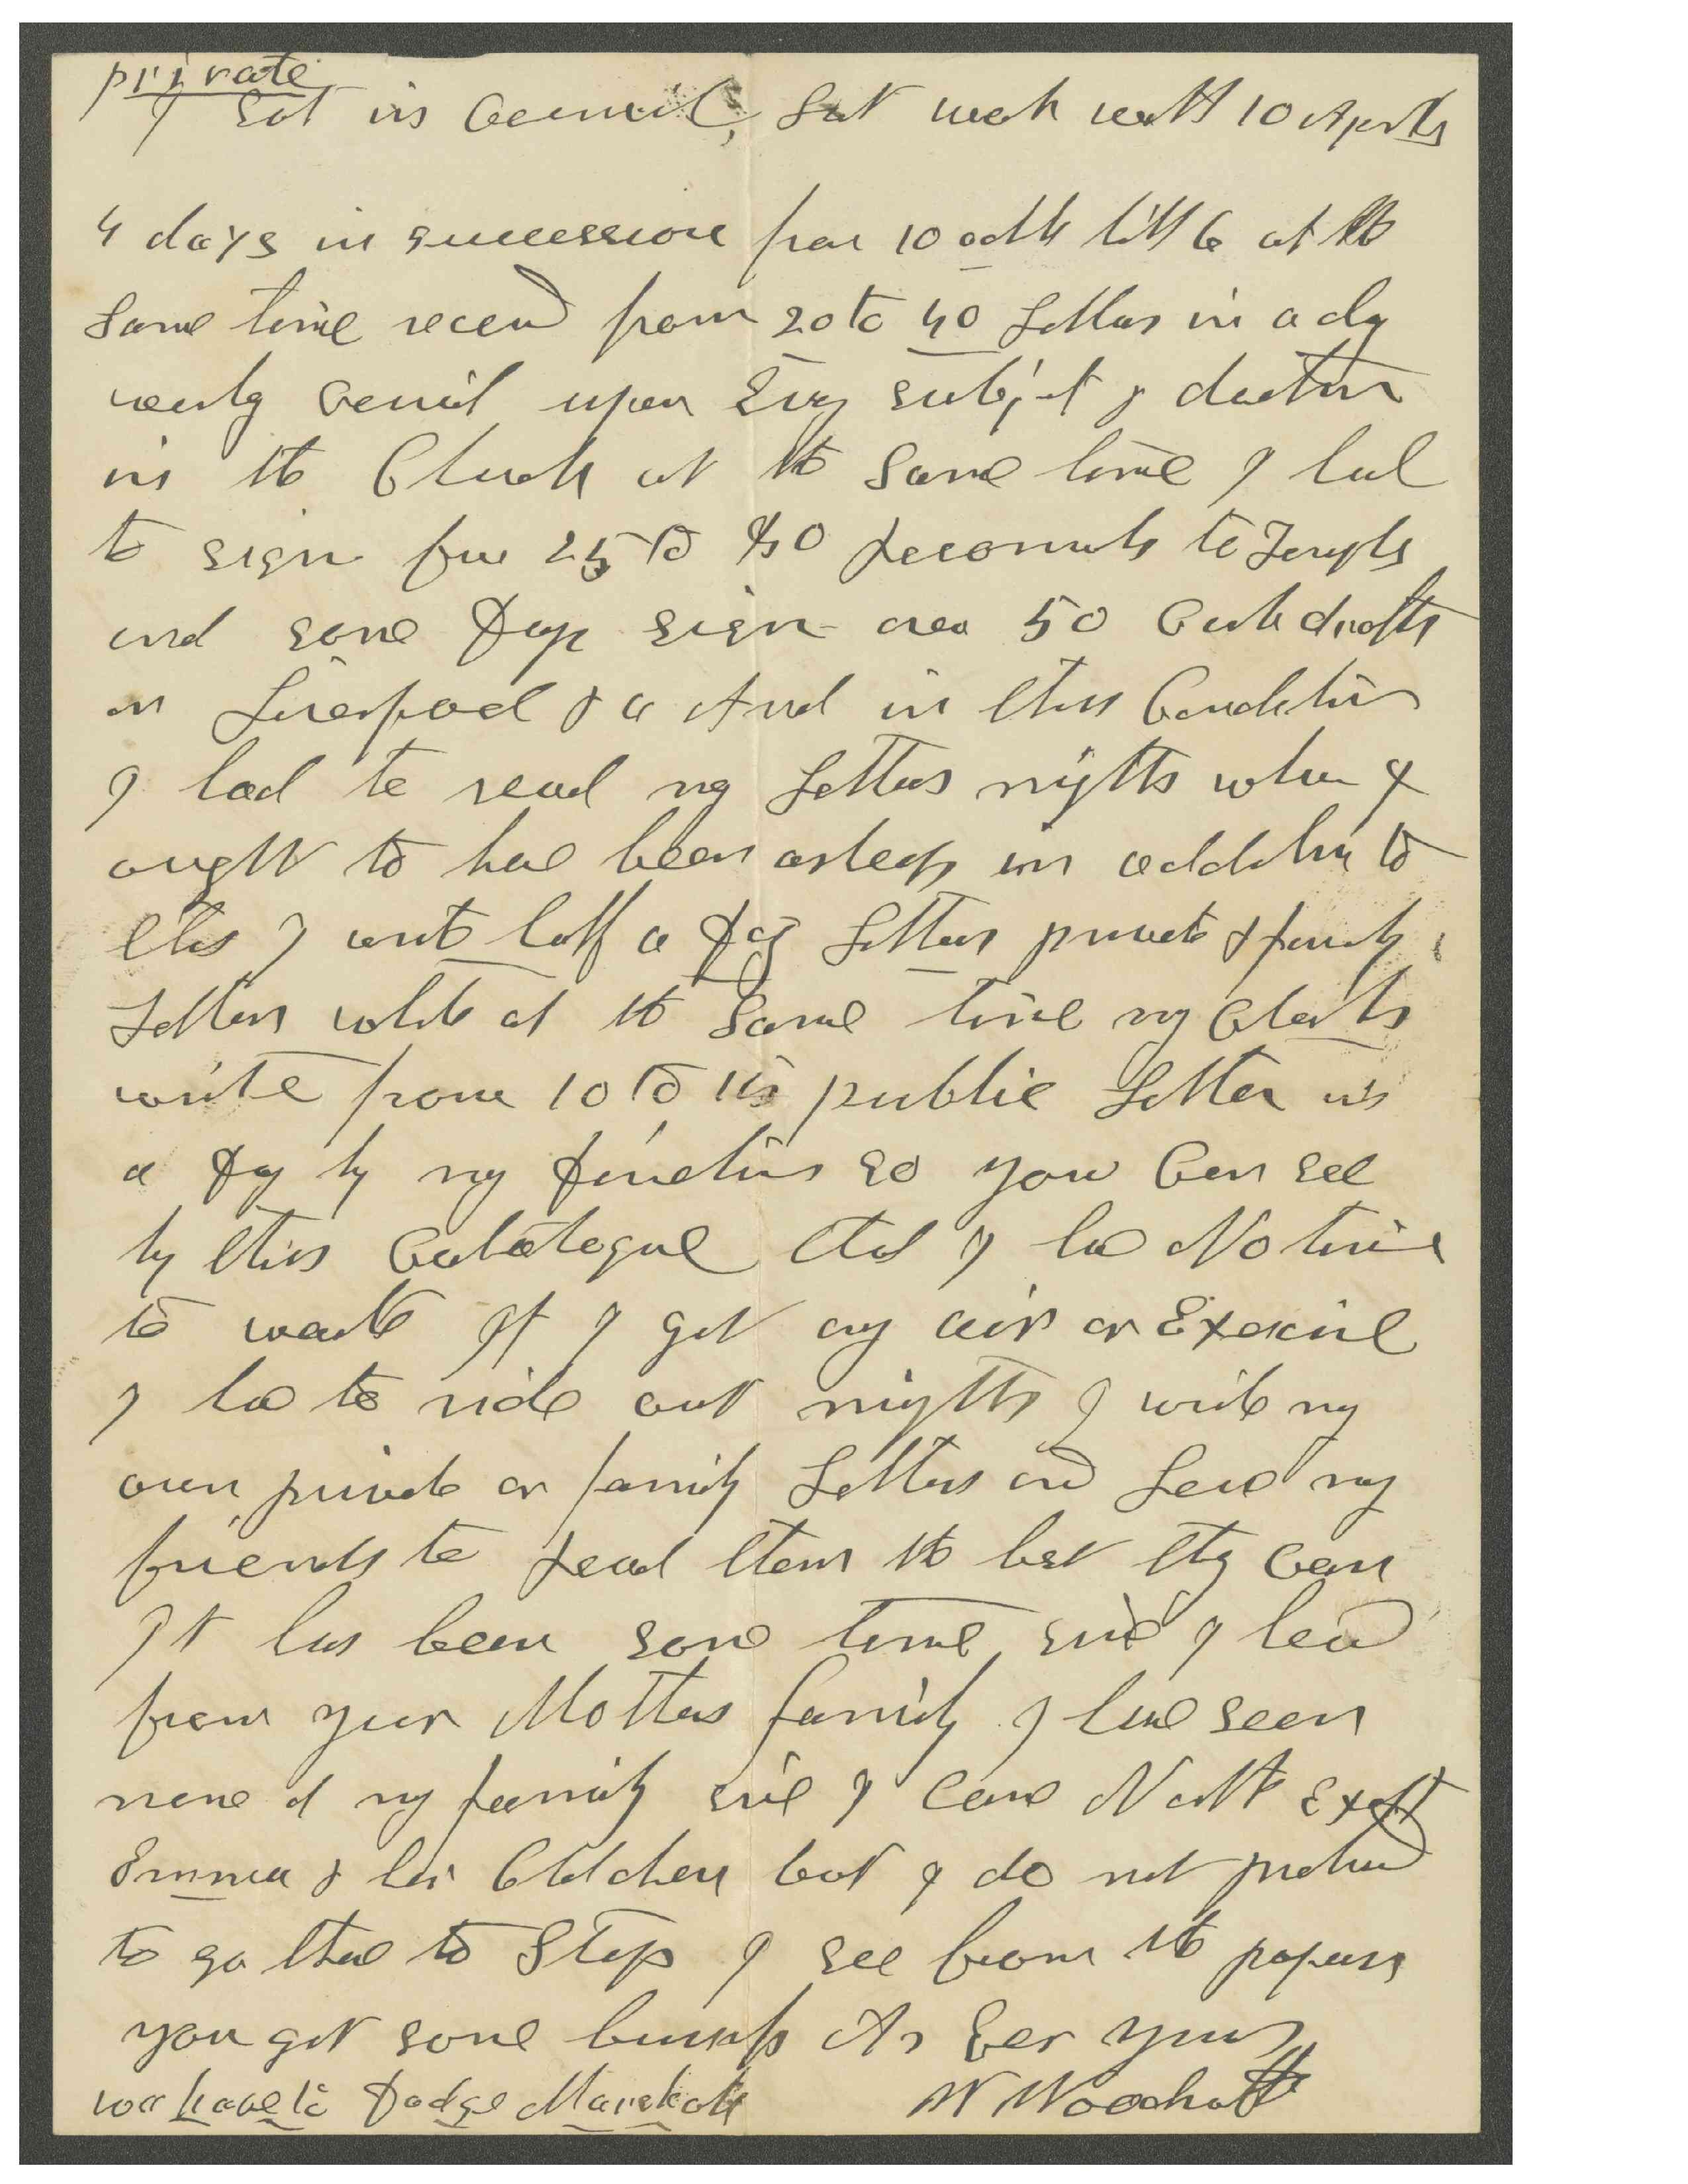 private
I Sat in Council, Last week with 10 Apostls
4 days in succession from 10 oclk till 6 at the
Same time receivd from 20 to 40 Letters in a day
wanting Council upon Evry subject & doctrin
in the Church at the Same time I had
to sign from 25 to 40 Recomends to Temple
and some Days sign over 50 Cash drafts
on Liverpool &c And in this Condition
I had to read my Letters nights when I
ought to have been asleep in addition to
this I write half a Doz Letters private & family
Letters while at the Same time my Clerks
write from 10 to 15 public Letter in
a Day by my Direction so you Can see
by this Catalogue that I have No time
to waste If I get any air or Exercise
I have to ride out nights I write my
own private or family Letters and Leave my
friends to Read them the best they Can
It has been some time since I heard
from your Mothers family I have seen
none of my family since I Came North Except
Emma & her Children but I do not pretend
to go there to Stop I see from the papers
you get some bumps As Ever yours
we have to Dodge Marshals W Woodruff